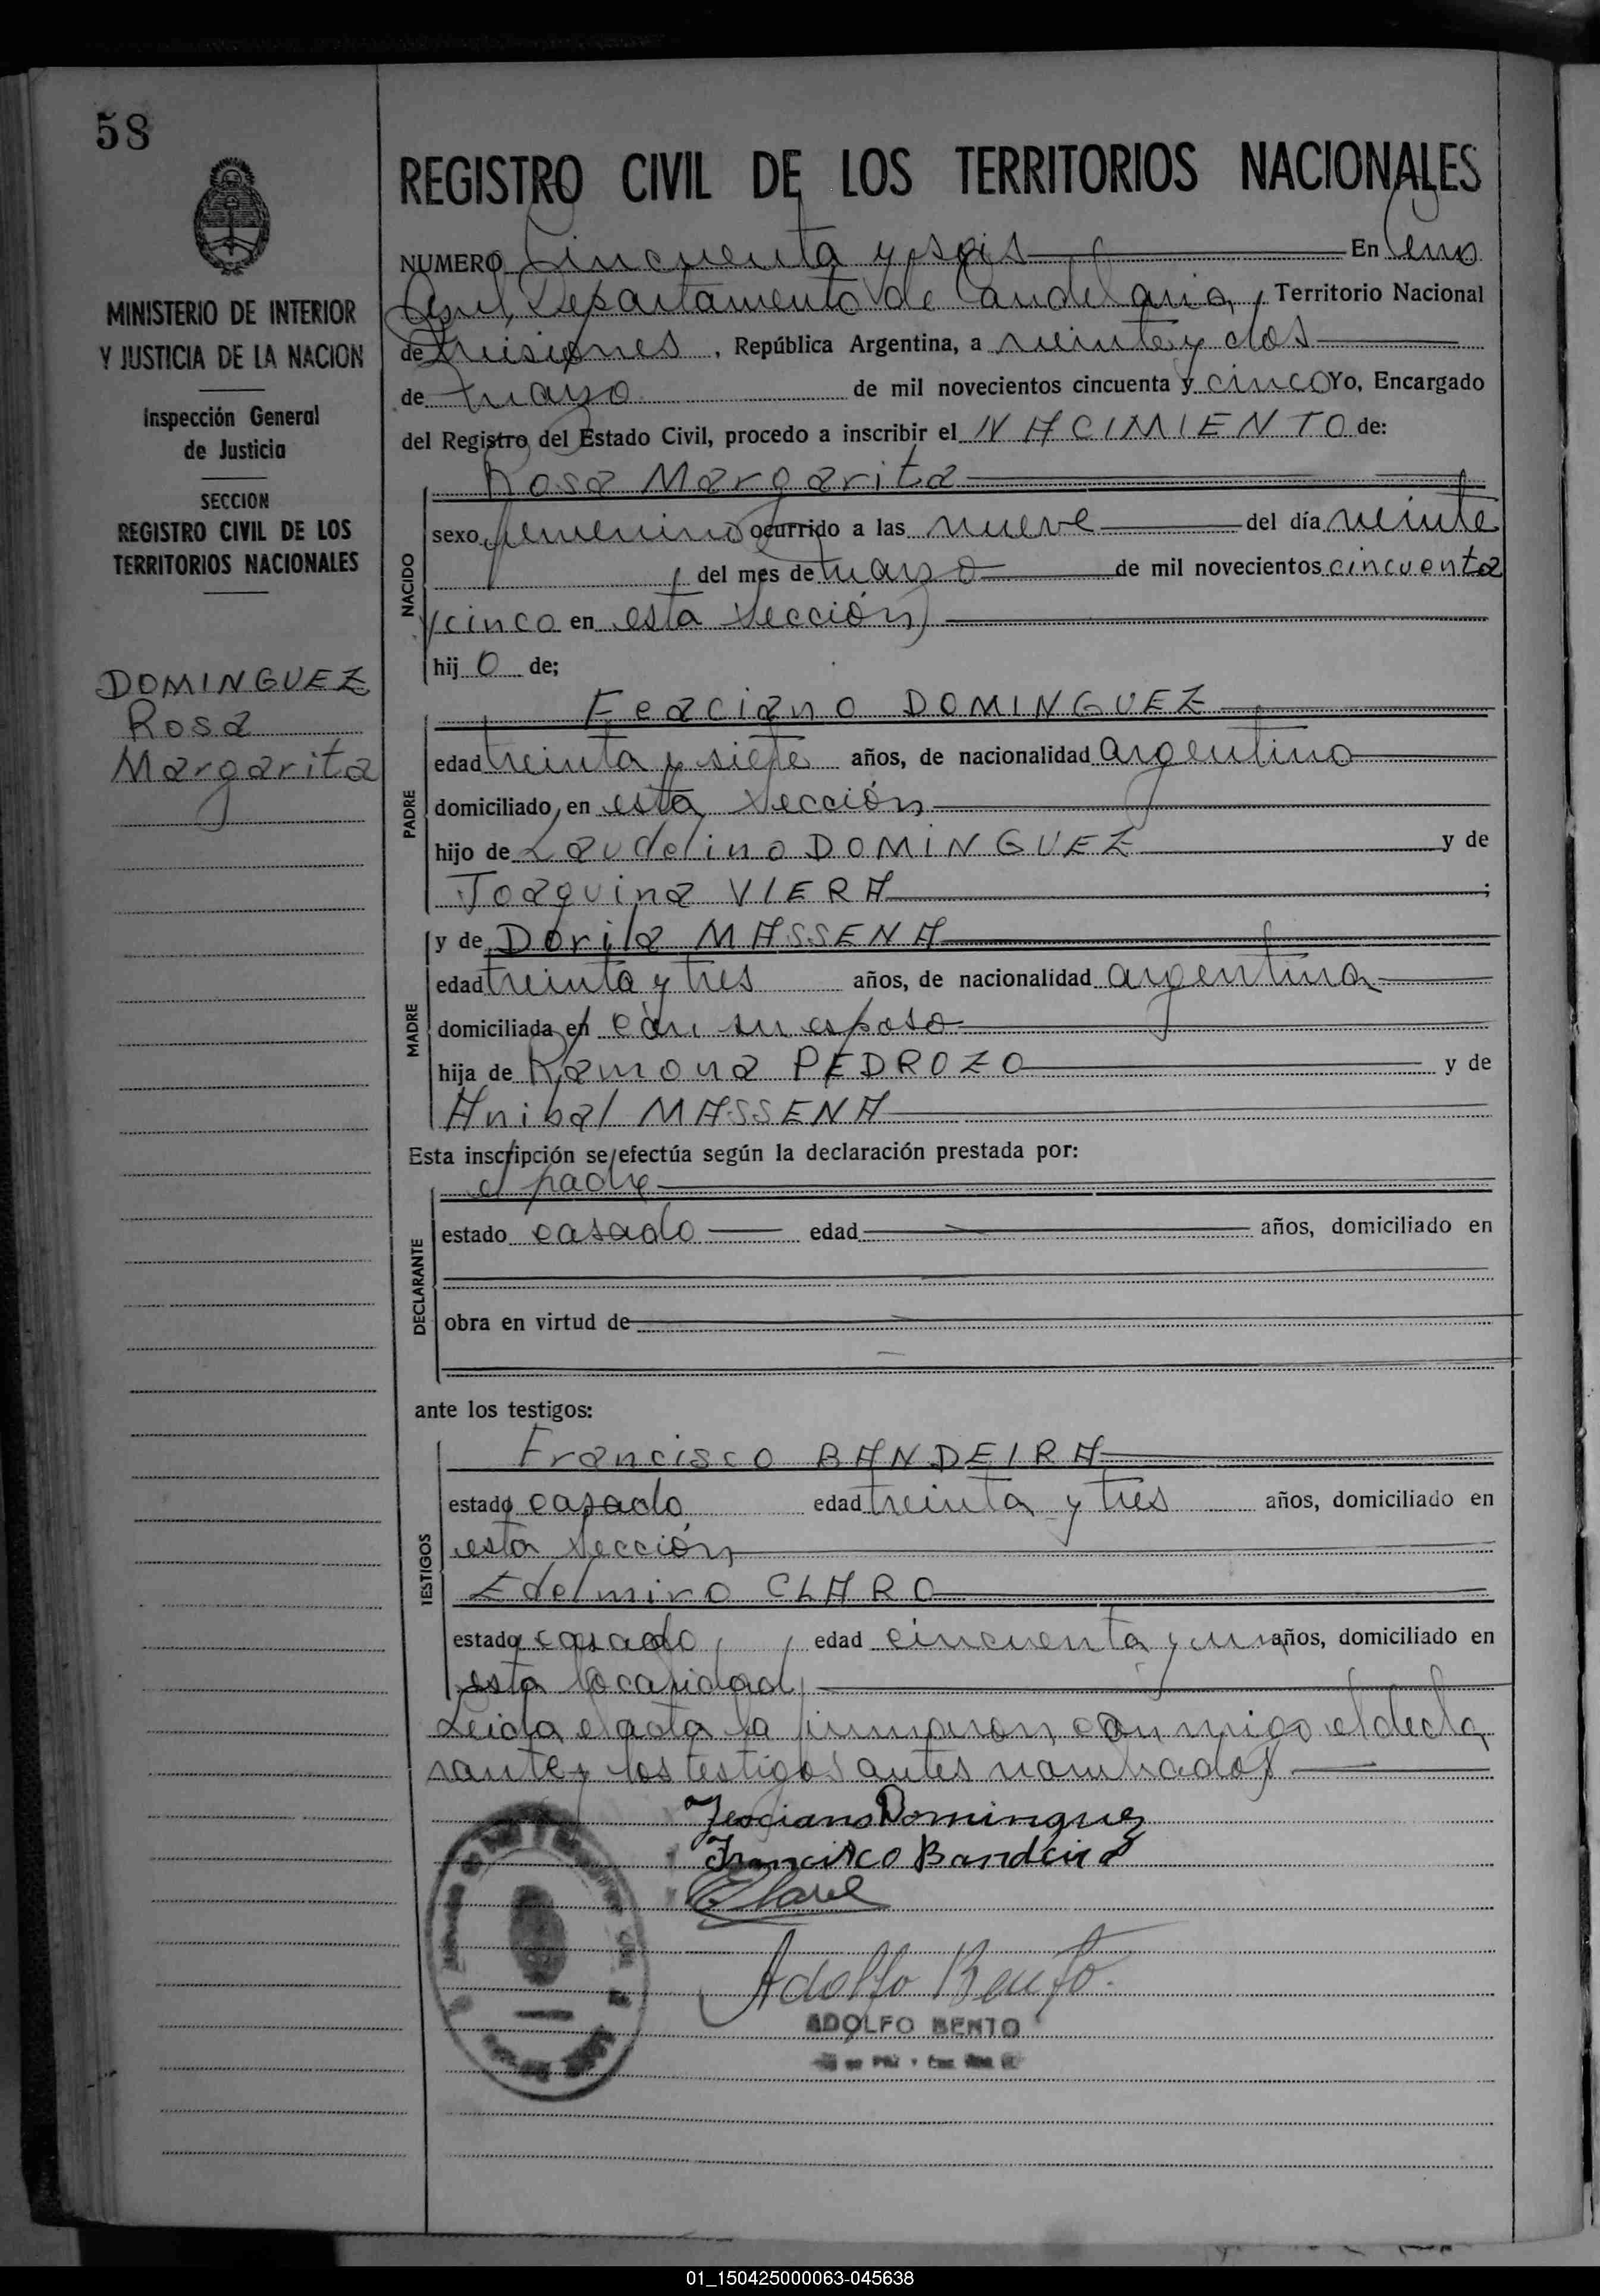 58
REGISTRO CIVIL DE LOS TERRITORIOS NACIONALES
MINISTERIO DE INTERIOR
Y JUSTICIA DE LA NACION
Inspección General
de Justicia
SECCION
REGISTRO CIVIL DE LOS
TERRITORIOS NACIONALES
DOMINGUEZ
Rosa
Margarita
NUMERO Cincuenta y seis En Cerro
Departamento de Candelaria, Territorio Nacional
de Misiones, República Argentina, a veinte y dos
de mayo de mil novecientos cincuenta y cinco Yo, Encargado
del Registro del Estado Civil, procedo a inscribir el NACIMIENTO de:
NACIDO
Rosa Margarita
sexo femenino ocurrido a las nueve del día veinte
del mes de marzo de mil novecientos cincuenta
y cinco en esta Sección
hij o de;
PADRE
Feaciano DOMINGUEZ
edad treinta y siete años, de nacionalidad argentino
domiciliado en esta Sección
hijo de Laudelino DOMINGUEZ y de
Joaquina VIERA ;
MADRE
y de Dorila MASSENA
edad treinta y tres años, de nacionalidad argentina
domiciliada en con su esposo
hija de Ramona PEDROZO y de
Anibal MASSENA
Esta inscripción se efectúa según la declaración prestada por:
DECLARANTE
el padre
estado casado edad años, domiciliado en
obra en virtud de
ante los testigos:
TESTIGOS
Francisco BANDEIRA
estado casado edad treinta y tres años, domiciliado en
esta Sección
Edelmiro CLARO
estado casado, edad cincuenta y un años, domiciliado en
esta localidad
Leida el acta la firmaron conmigo el decla
rante y los testigos antes nombrados
Feociano Dominguez
Francisco Bandeira
Adolfo Bento.
ADOLFO BENTO
01_150425000063-045638